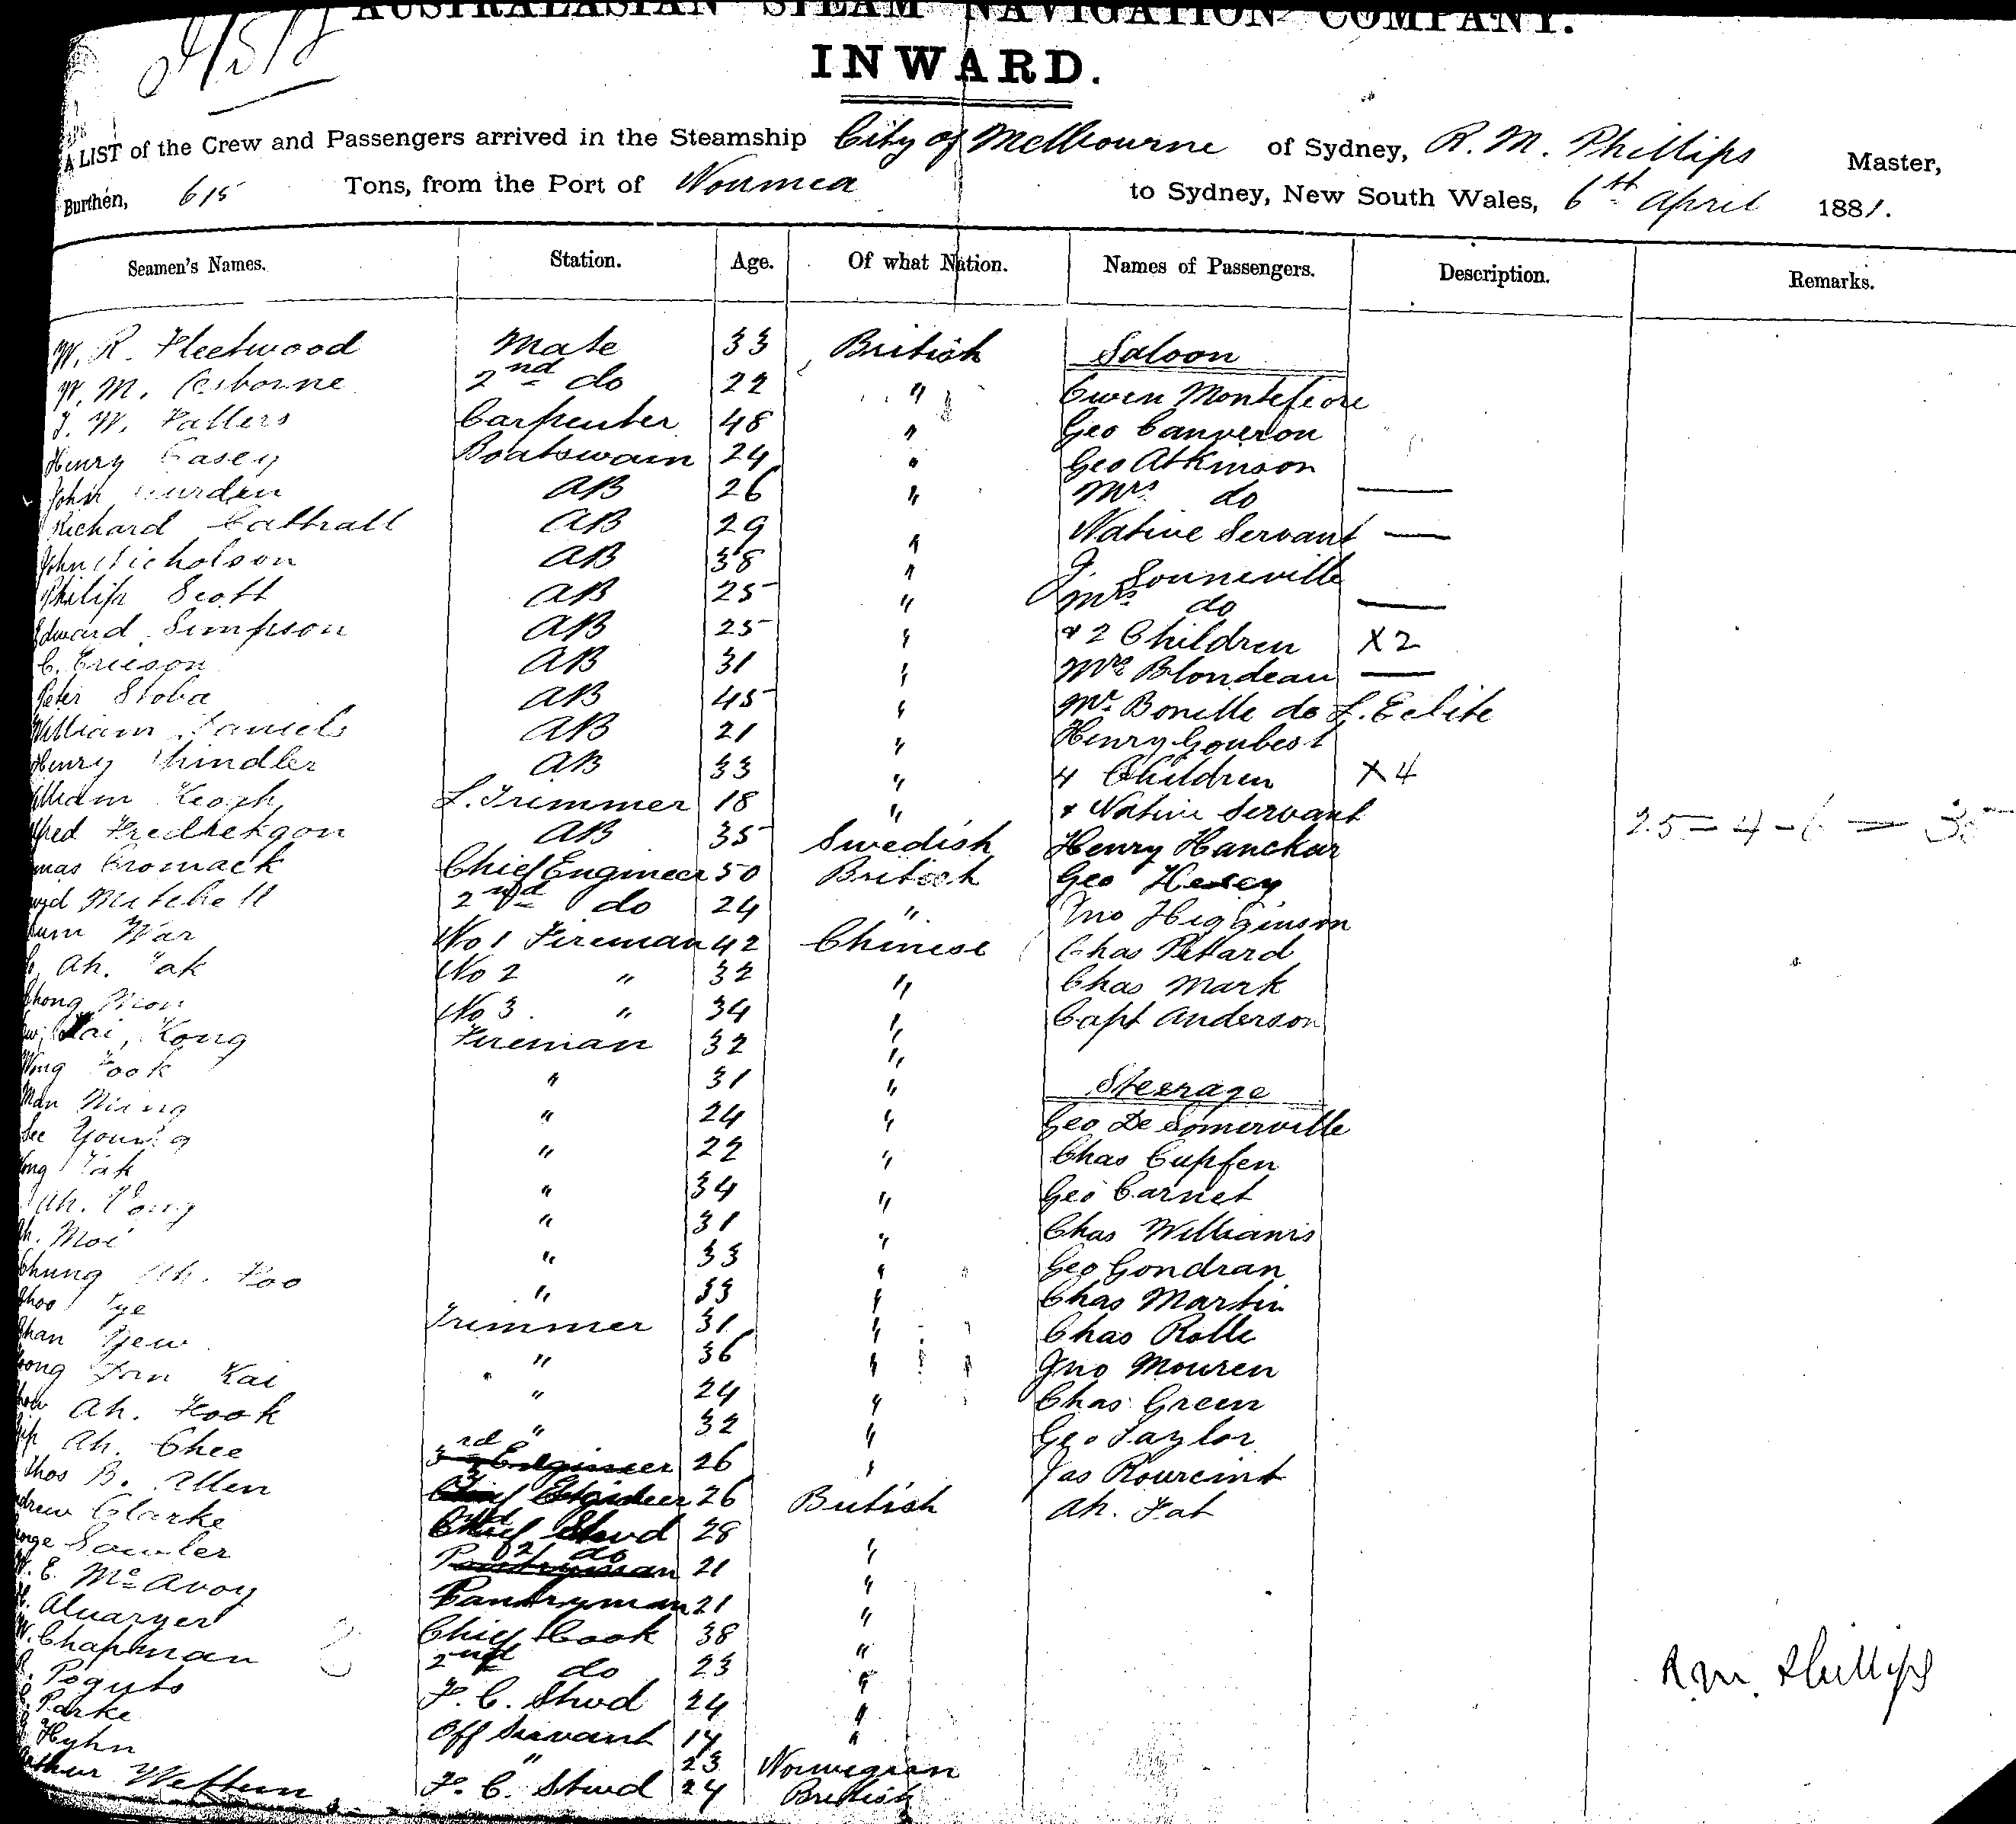 AUSTRALASIAN STEAM NAVIGATION COMPANY.
INWARD.
A LIST of the Crew and Passengers arrived in the Steamship City of Melbourne of Sydney, R. M. Phillips Master,
Burthen, 615 Tons, from the Port of Noumea to Sydney, New South Wales, 6th April 1881.
Seamen's Names. Station. Age. Of what Nation. Names of Passengers. Description. Remarks.
W. R. Fleetwood Mate 33 British Saloon
W. M. Osborne 2nd do 22 " Owen Montefiore
J. W. Fallers Carpenter 48 " Geo Canveron
Henry Casey Boatswain 24 " Geo Atkinson
John AB 26 " Mrs do —
Richard Cathrall AB 29 " Native Servant —
John Nicholson AB 38 " J. Sonneville
Philip Scott AB 25 " Mrs do —
Edward Simpson AB 25 " & 2 Children X2
C. Ericson AB 31 " Mrs Blondeau —
Peter Stoba AB 45 " Mr. Bonille de L. Eclite
William Daniels AB 21 " Henry Goubest
Henry Shindler AB 33 " 4 Children X4
William Keogh L. Trimmer 18 " & Native Servant
Alfred AB 35 Swedish Henry Hanckar
Cromack Chief Engineer 50 British Geo
Mitchell 2nd do 24 " Jno Higginson
War No 1 Fireman 42 Chinese Chas Petard
Ah. Tak No 2 " 32 " Chas Mark
Chong No 3 " 34 " Capt Anderson
Kai, Kong Fireman 32 "
Fook " 31 " Steerage
Man " 24 " Geo De Somerville
See Young " 22 " Chas Cupfen
Tak " 34 " Geo Carnet
Ah. " 31 " Chas Williams
Ah. Moi " 33 " Geo Gondran
Chung Ah. Poo " 33 " Chas Martin
Choo Tye Trimmer 31 " Chas Rolle
Chan Yew " 36 " Jno Mouren
Kai " 24 " Chas Green
Ah. Hook " 32 " Geo Taylor
Ah. Chee 26 " Jas Rourcint
Thos B. Allen 26 British Ah. Fat
Andrew Clarke Chief Stwd 28 "
George Sawler 2nd do 21 "
W. E. McAvoy Pantryman 21 "
Alvarger Chief Cook 38 "
W. Chapman 2nd do 23 "
Poguto F. C. Stwd 24 "
Parke Off Servant 17 "
Hyhn " 23 Norwegian
Arthur F. C. Stwd 24 British
R. M. Phillips